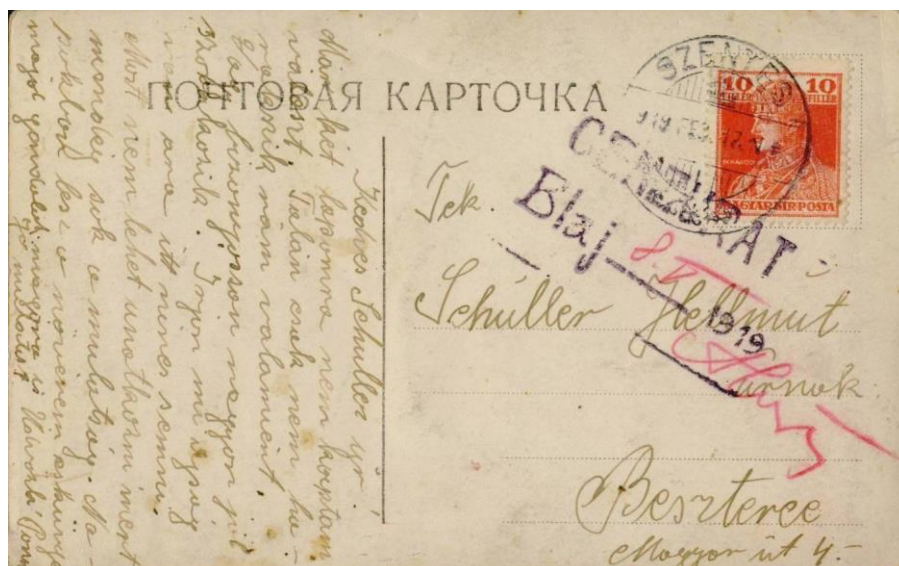 ПОЧТОВАЯ КАРТОЧКА
SZENTES
919 FEB. 17.
10 10
FILLÉR
MAGYAR KIR POSTA
CENZURAT
Blaj 8 VI 1919
Tek.
Schüller Hellmut
Úrnak.
Beszterce
Magyar út 4.-
Kedves Schuller úr,
Harmket lapomra nem kaptam
választ. Talán csak nem ha-
ragszik rám valamiért.
Ugy bizonyosan nagyon jól
szórakozik. Irjon mi ujság
van arra itt nincs semmi.
Most nem lehet unatkozni mert
mindég sok a mulatság. Ma-
pokban lesz a növérem esküvője
major gondoljk magára is
jó mulatást